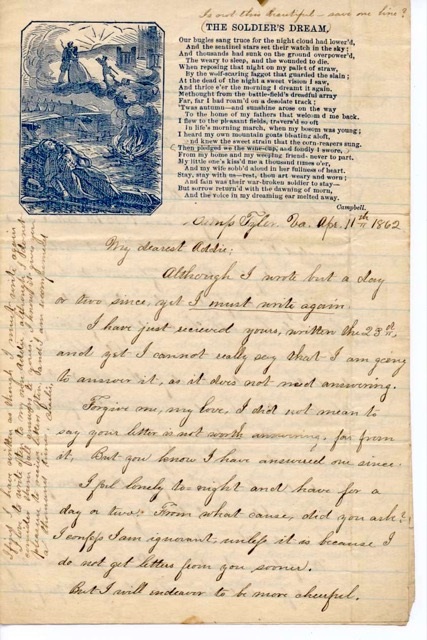 Is not this beautiful - save one line?
(THE SOLDIER'S DREAM.)
Our bugles sang truce for the night cloud had lower'd,
And the sentinel stars set their watch in the sky;
And thousands had sunk on the ground overpower'd,
The weary to sleep, and the wounded to die.
When reposing that night on my pallet of straw,
By the wolf-scaring faggot that guarded the slain;
At the dead of the night a sweet vision I saw,
And thrice e'er the morning I dreamt it again.
Methought from the battle-field's dreadful array
Far, far I had roam'd on a desolate track;
'Twas autumn—and sunshine arose on the way
To the home of my fathers that welcom'd me back.
I flew to the pleasant fields, travers'd so oft
In life's morning march, when my bosom was young;
I heard my own mountain goats bleating aloft,
And knew the sweet strain that the corn-reapers sung.
Then pledged we the wine-cup, and fondly I swore,
From my home and my weeping friends never to part,
My little one's kiss'd me a thousand times o'er,
And my wife sobb'd aloud in her fullness of heart.
Stay, stay with us—rest, thou art weary and worn;
And fain was their war-broken soldier to stay—
But sorrow return'd with the dawning of morn,
And the voice in my dreaming ear melted away.
Campbell.
Camp Tyler, Va. Apr. 11th 1862
My dearest Addie;
Although I wrote but a day
or two since, yet I must write again
I have just recieved yours, written the 23rd
and yet I cannot really say that I am going
to answer it, as it does not need answering.
Forgive me, my love, I did not mean to
say your letter is not worth answering, far from
it, But you know I have answered one since.
I feel lonely to-night and have for a
day or two. From what cause, did you ask?
I confess I am ignorant, unless it is because I
do not get letters from you sooner.
But I will endeavor to be more cheerful.
I have written as though I must write again